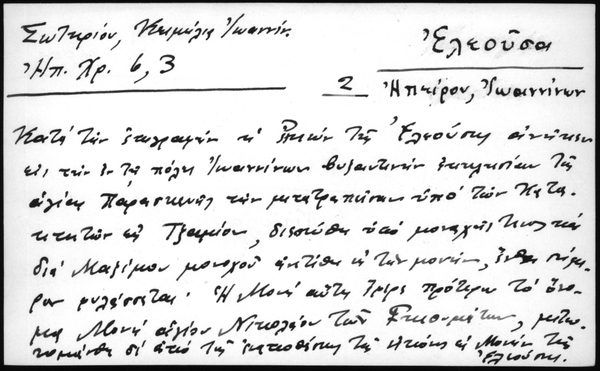 Σωτηρίου, Κειμήλια Ἰωαννίν.
Ἠπ. Χρ. 6, 3
Ἐλεοῦσα
2 Ἠπείρου, Ἰωαννίνων
Κατά τήν ἐπιγραφήν ἡ εἰκών τῆς Ἐλεούσης ἀνῆκεν
εἰς τήν ἐν τῇ πόλει Ἰωαννίνων βυζαντινήν ἐκκλησίαν τῆς
ἁγίας Παρασκευῆς τήν μετατραπεῖσαν ὑπό τῶν Κατα-
κτητῶν εἰς Τζαμίον, διεσώθη ὑπό μοναχῆς καί
διά Μαξίμου μοναχοῦ ἀνετέθη εἰς τήν μονήν, ἔνθα σήμε-
ρον φυλάσσεται. Ἡ Μονή αὕτη ἔφερε πρότερον τό ὄνο-
μα Μονή ἁγίου Νικολάου τῶν, μετω-
νομάσθη δέ ἀπό τῆς καταθέσεως τῆς εἰκόνος εἰς Μονήν τῆς
Ἐλεούσης.